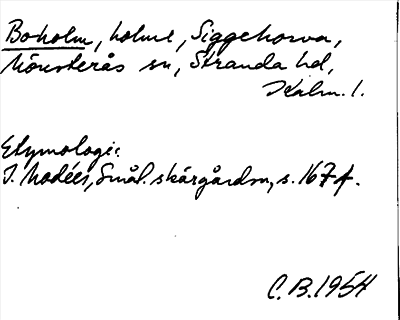 Boholm, holme, Siggehorva,
Mönsterås sn, Stranda hd,
Kalm. l.
Etymologi:
I. Modéer, Smål. skärgårdsn, s. 167 f.
C. B. 1954